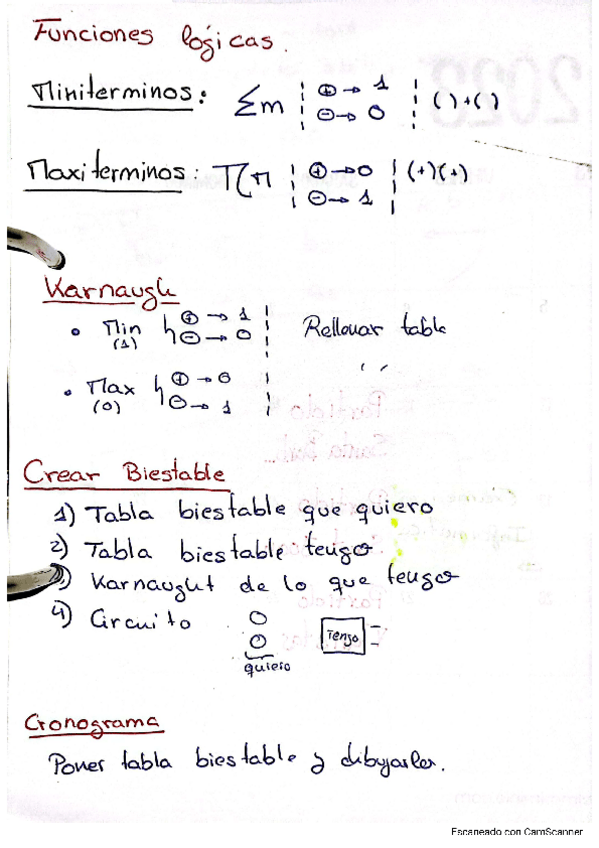 Funciones lógicas.
Miniterminos: Σm | ⊕→ 1 | ( )+( )
⊖→ 0
Maxiterminos: π M | ⊕→0 | (+)(+)
⊖→ 1
Karnaugh
• Min ⊕ → 1 | Rellenar tabla
(1) ⊖ → 0
• Max ⊕ → 0 | ' '
(0) ⊖ → 1
Crear Biestable
1) Tabla biestable que quiero
2) Tabla biestable tengo
3) Karnaught de lo que tengo
4) Circuito
Tengo
quiero
Cronograma
Poner tabla biestable y dibujarlo.
Escaneado con CamScanner